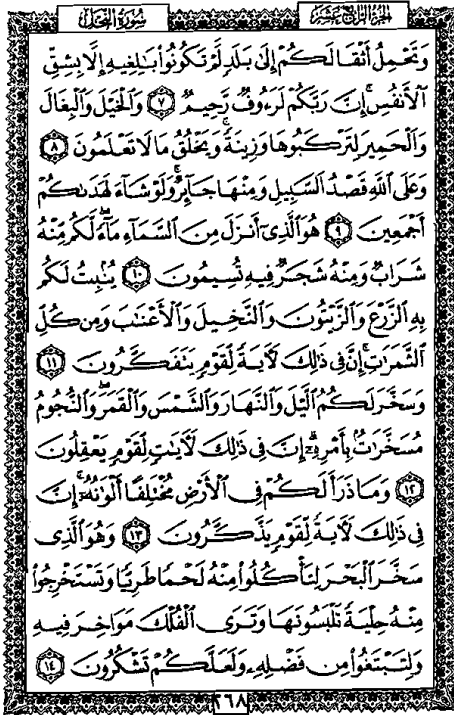 الجزء الرابع عشر سورة النحل
وَتَحْمِلُ أَثْقَالَكُمْ إِلَىٰ بَلَدٍ لَّمْ تَكُونُوا۟ بَـٰلِغِيهِ إِلَّا بِشِقِّ
ٱلْأَنفُسِ ۚ إِنَّ رَبَّكُمْ لَرَءُوفٌ رَّحِيمٌ ٧ وَٱلْخَيْلَ وَٱلْبِغَالَ
وَٱلْحَمِيرَ لِتَرْكَبُوهَا وَزِينَةً ۚ وَيَخْلُقُ مَا لَا تَعْلَمُونَ ٨
وَعَلَى ٱللَّهِ قَصْدُ ٱلسَّبِيلِ وَمِنْهَا جَآئِرٌ ۚ وَلَوْ شَآءَ لَهَدَىٰكُمْ
أَجْمَعِينَ ٩ هُوَ ٱلَّذِىٓ أَنزَلَ مِنَ ٱلسَّمَآءِ مَآءً ۖ لَّكُم مِّنْهُ
شَرَابٌ وَمِنْهُ شَجَرٌ فِيهِ تُسِيمُونَ ١٠ يُنۢبِتُ لَكُم
بِهِ ٱلزَّرْعَ وَٱلزَّيْتُونَ وَٱلنَّخِيلَ وَٱلْأَعْنَـٰبَ وَمِن كُلِّ
ٱلثَّمَرَٰتِ ۗ إِنَّ فِى ذَٰلِكَ لَـَٔايَةً لِّقَوْمٍ يَتَفَكَّرُونَ ١١
وَسَخَّرَ لَكُمُ ٱلَّيْلَ وَٱلنَّهَارَ وَٱلشَّمْسَ وَٱلْقَمَرَ ۖ وَٱلنُّجُومُ
مُسَخَّرَٰتٌۢ بِأَمْرِهِۦٓ ۗ إِنَّ فِى ذَٰلِكَ لَـَٔايَـٰتٍ لِّقَوْمٍ يَعْقِلُونَ
١٢ وَمَا ذَرَأَ لَكُمْ فِى ٱلْأَرْضِ مُخْتَلِفًا أَلْوَٰنُهُۥٓ ۗ إِنَّ
فِى ذَٰلِكَ لَـَٔايَةً لِّقَوْمٍ يَذَّكَّرُونَ ١٣ وَهُوَ ٱلَّذِى
سَخَّرَ ٱلْبَحْرَ لِتَأْكُلُوا۟ مِنْهُ لَحْمًا طَرِيًّا وَتَسْتَخْرِجُوا۟
مِنْهُ حِلْيَةً تَلْبَسُونَهَا وَتَرَى ٱلْفُلْكَ مَوَاخِرَ فِيهِ
وَلِتَبْتَغُوا۟ مِن فَضْلِهِۦ وَلَعَلَّكُمْ تَشْكُرُونَ ١٤
٢٦٨